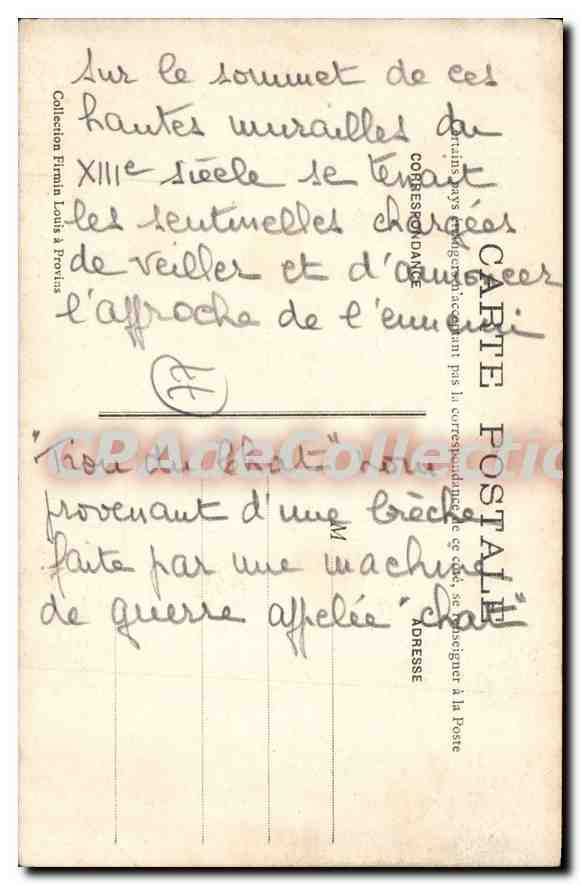 sur le sommet de ces
hautes murailles du
XIIIe siècle se tenait
les sentinelles chargées
de veiller et d'annoncer
l'approche de l'ennemi
77
"Trou du Chat" nom
provenant d'une brèche
faite par une machine
de guerre appelée "chat"
CARTE POSTALE
Certains pays étrangers n'acceptant pas la correspondance de ce côté, se renseigner à la Poste
CORRESPONDANCE
ADRESSE
M
Collection Firmin Louis à Provins
CPAdeCollection